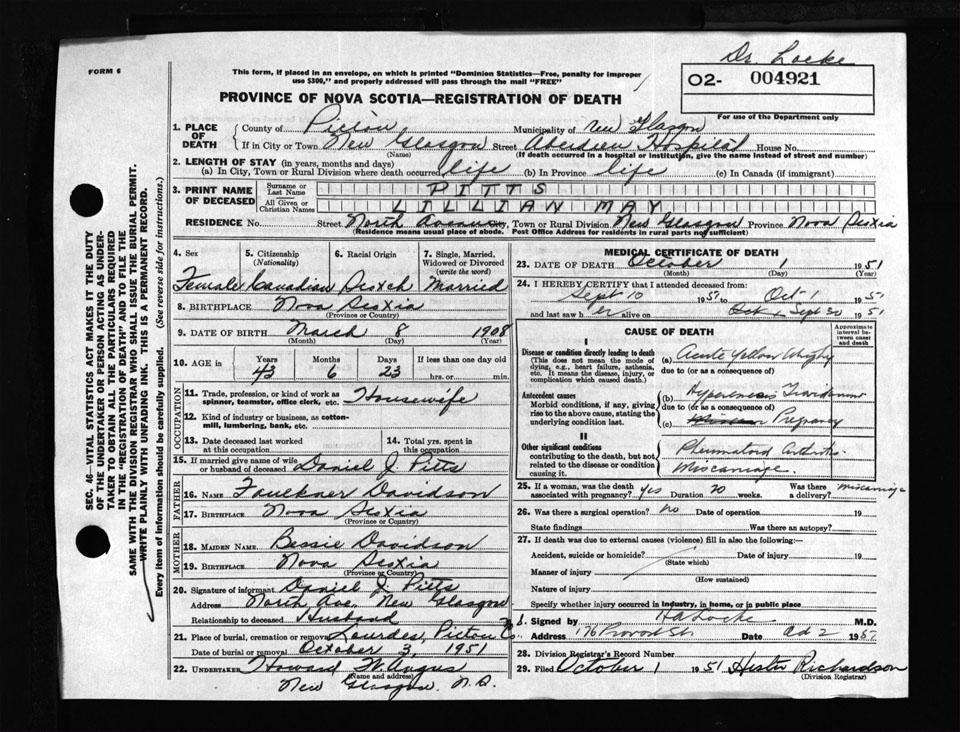 Dr. Locke
FORM 6
This form, if placed in an envelope, on which is printed "Dominion Statistics—Free, penalty for improper
use $300," and properly addressed will pass through the mail "FREE"
O2- 004921
For use of the Department only
PROVINCE OF NOVA SCOTIA—REGISTRATION OF DEATH
SEC. 46—VITAL STATISTICS ACT MAKES IT THE DUTY
OF THE UNDERTAKER OR PERSON ACTING AS UNDER-
TAKER TO OBTAIN ALL THE PARTICULARS REQUIRED
IN THE "REGISTRATION OF DEATH" AND TO FILE THE
SAME WITH THE DIVISION REGISTRAR WHO SHALL ISSUE THE BURIAL PERMIT.
WRITE PLAINLY WITH UNFADING INK. THIS IS A PERMANENT RECORD.
Every item of information should be carefully supplied. (See reverse side for instructions.)
1. PLACE OF DEATH County of Pictou Municipality of New Glasgow
If in City or Town New Glasgow Street Aberdeen Hospital House No.
(Name) (If death occurred in a hospital or institution, give the name instead of street and number)
2. LENGTH OF STAY (in years, months and days)
(a) In City, Town or Rural Division where death occurred life (b) In Province life (c) In Canada (if immigrant)
3. PRINT NAME OF DECEASED Surname or Last Name PITTS
All Given or Christian Names LILLIAN MAY
RESIDENCE No. Street North Avenue City, Town or Rural Division New Glasgow Province Nova Scotia
(Residence means usual place of abode. Post Office Address for residents in rural parts not sufficient)
4. Sex 5. Citizenship (Nationality) 6. Racial Origin 7. Single, Married, Widowed or Divorced (write the word)
Female Canadian Scotch Married
8. BIRTHPLACE Nova Scotia
(Province or Country)
9. DATE OF BIRTH March 8 1908
(Month) (Day) (Year)
10. AGE in Years Months Days If less than one day old
43 6 23 hrs. or min.
OCCUPATION
11. Trade, profession, or kind of work as spinner, teamster, office clerk, etc. Housewife
12. Kind of industry or business, as cotton-mill, lumbering, bank, etc.
13. Date deceased last worked at this occupation 14. Total yrs. spent in this occupation
15. If married give name of wife or husband of deceased Daniel J. Pitts
FATHER
16. NAME Faulkner Davidson
17. BIRTHPLACE Nova Scotia
(Province or Country)
MOTHER
18. MAIDEN NAME Bessie Davidson
19. BIRTHPLACE Nova Scotia
(Province or Country)
20. Signature of informant Daniel J. Pitts
Address North Ave. New Glasgow
Relationship to deceased Husband
21. Place of burial, cremation or removal Lourdes, Pictou Co.
Date of burial or removal October 3, 1951
22. UNDERTAKER Howard W. Angus
(Name and address)
New Glasgow, N.S.
MEDICAL CERTIFICATE OF DEATH
23. DATE OF DEATH October 1 1951
(Month) (Day) (Year)
24. I HEREBY CERTIFY that I attended deceased from:
Sept 10 1951 to Oct 1 1951
and last saw her alive on Sept 30 1951
CAUSE OF DEATH
Approximate interval between onset and death
I
Disease or condition directly leading to death
(This does not mean the mode of dying, e.g., heart failure, asthenia, etc. It means the disease, injury, or complication which caused death.)
(a) Acute Yellow Atrophy
due to (or as a consequence of)
Antecedent causes
Morbid conditions, if any, giving rise to the above cause, stating the underlying condition last.
(b) Hyperemesis Gravidarum
due to (or as a consequence of)
(c) Pregnancy
II
Other significant conditions
contributing to the death, but not related to the disease or condition causing it.
Rheumatoid Arthritis
Miscarriage.
25. If a woman, was the death associated with pregnancy? yes Duration 20 weeks. Was there a delivery? miscarriage
26. Was there a surgical operation? no Date of operation 19
State findings Was there an autopsy?
27. If death was due to external causes (violence) fill in also the following:—
Accident, suicide or homicide? Date of injury 19
(State which)
Manner of injury
(How sustained)
Nature of injury
Specify whether injury occurred in industry, in home, or in public place
Signed by H A Locke M.D.
Address 176 Provost St. Date Oct 2 1951
28. Division Registrar's Record Number
29. Filed October 1 1951 Hester Richardson
(Division Registrar)